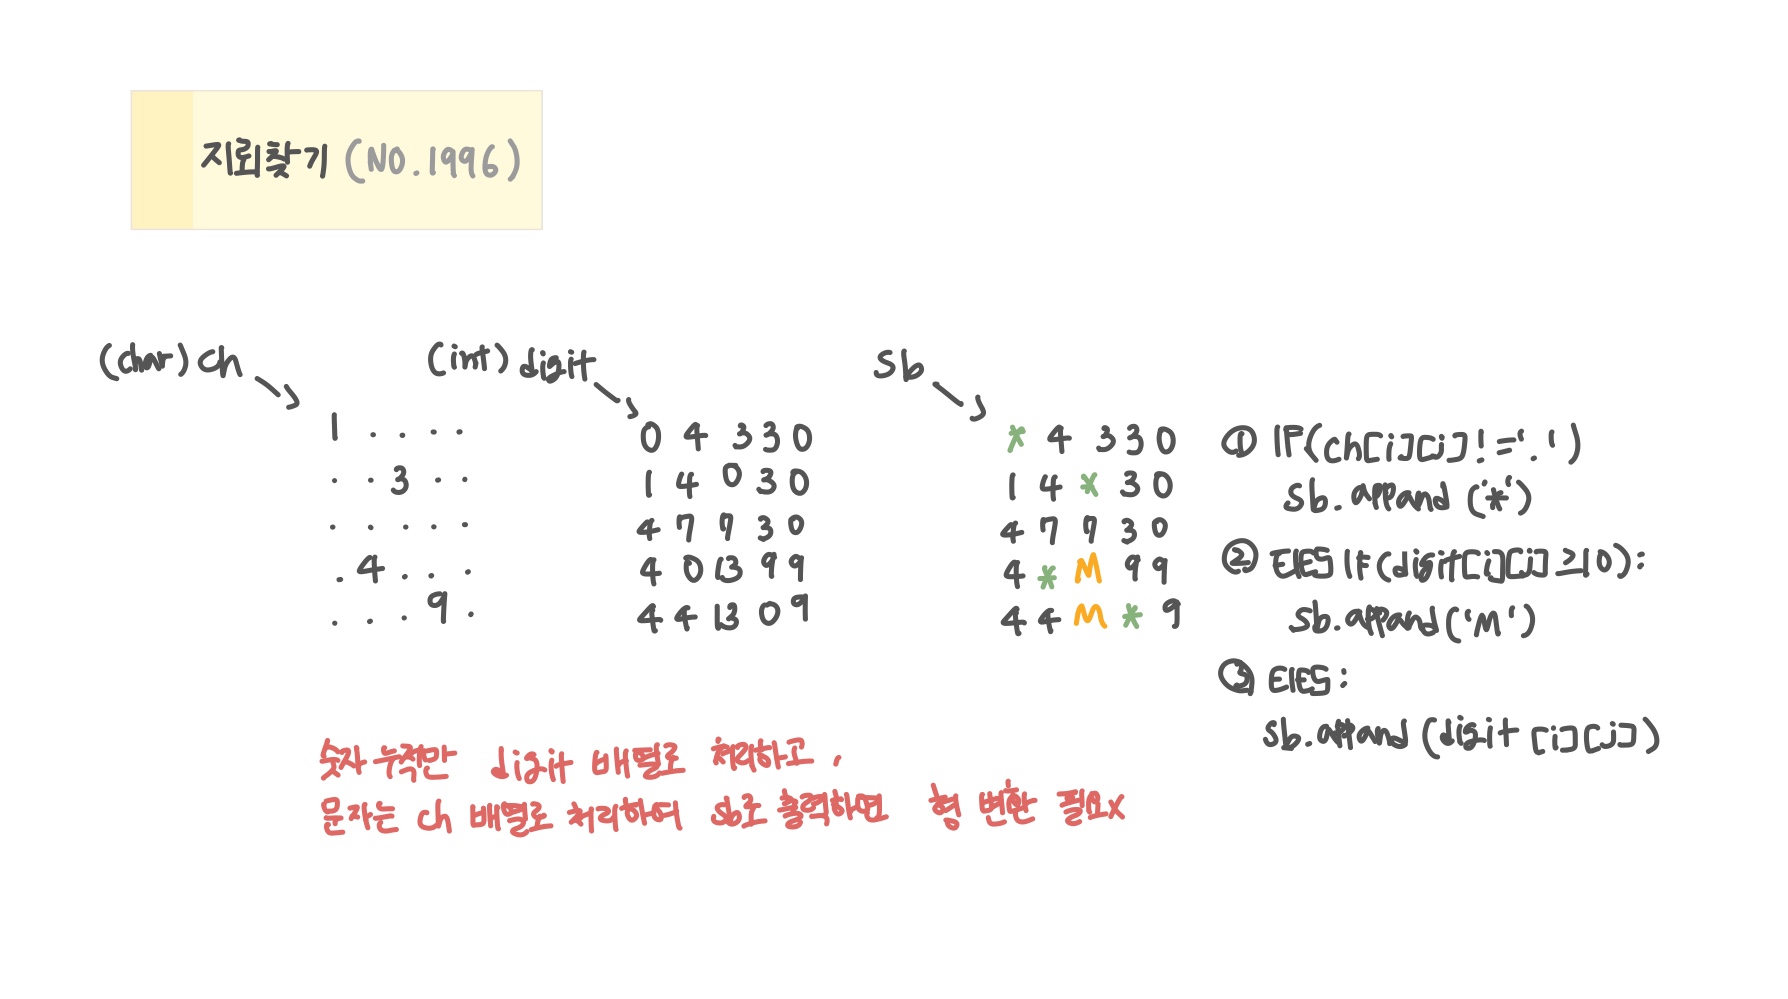 지뢰찾기 (NO.1996)
(char) ch
(int) digit
Sb
1 . . . .
. . 3 . .
. . . . .
. 4 . . .
. . . 9 .
0 4 3 3 0
1 4 0 3 0
4 7 7 3 0
4 0 13 9 9
4 4 13 0 9
* 4 3 3 0
1 4 * 3 0
4 7 7 3 0
4 * M 9 9
4 4 M * 9
① IF(ch[i][j]!='.')
Sb.appand('*')
② ElES IF(digit[i][j]≥10):
Sb.appand('M')
③ ElES:
Sb.appand(digit [i][j])
숫자 누적만 digit 배열로 처리하고,
문자는 ch 배열로 처리하여 sb로 출력하면 형 변환 필요x